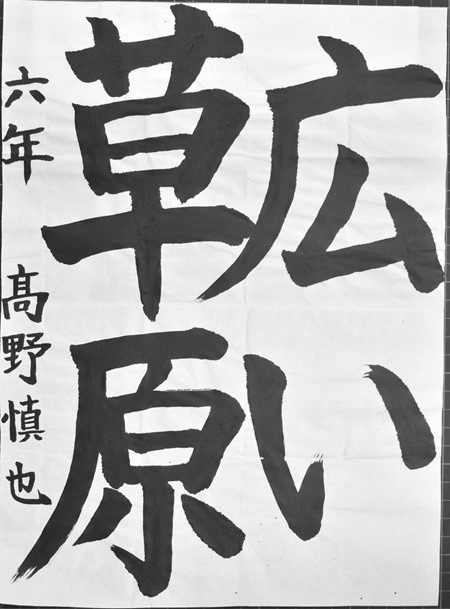 広い
草原
六年 髙野慎也